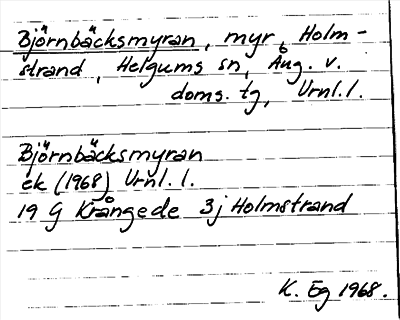 Björnbäcksmyran, myr, Holm-
strand, Helgums sn, Ång. v.
doms. tg, Urnl. l.
Björnbäcksmyran
ek (1968) Urnl. l.
19 G Krångede 3j Holmstrand
K. Eg 1968.